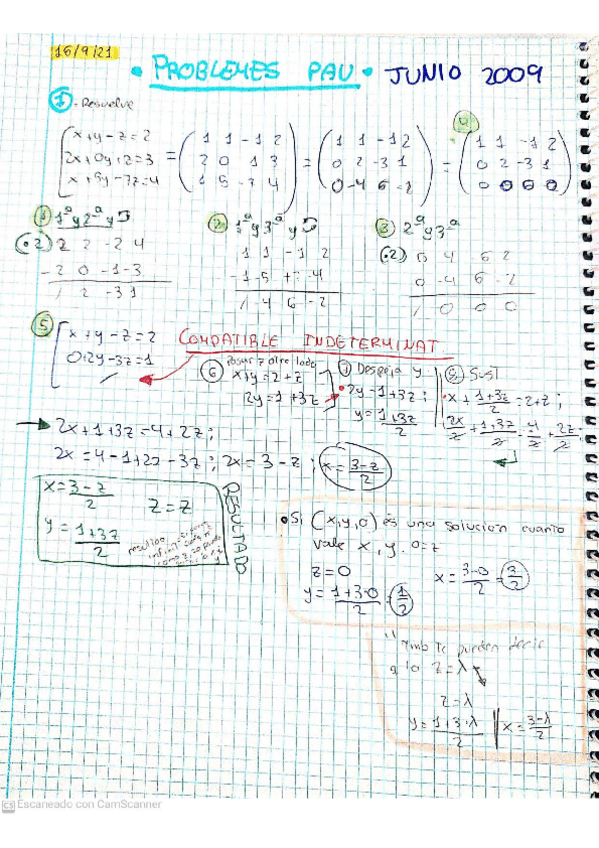 16/9/21
• PROBLEMES PAU • JUNIO 2009
1 - Resuelve
x+y-z=2
2x+0y+z=3
x+5y-7z=4
= ( 1 1 -1 2
2 0 1 3
1 5 -7 4 )
= ( 1 1 -1 2
0 2 -3 1
0 -4 6 -2 )
= ( 1 1 -1 2
0 2 -3 1
0 0 0 0 )
4
1 1ª y 2ª y
(·2) 2 2 -2 4
-2 0 -1 -3
/ 2 -3 1
2 1ª y 3ª y
1 1 -1 2
-1 -5 +7 -4
/ -4 6 -2
3 2ª y 3ª
(·2) 0 4 6 2
0 -4 6 -2
/ 0 0 0
5 x+y-z=2
0+2y-3z=1
COMPATIBLE INDETERMINAT
6 Pasar z otro lado
x+y=2+z
2y=1+3z
7 Despeja y
2y=1+3z;
y=1+3z/2
8 Sust
x+1+3z/2=2+z;
2x/2+1+3z/2=4/2+2z/2;
2x+1+3z=4+2z;
2x=4-1+2z-3z; 2x=3-z; x=3-z/2
x=3-z/2
z=z
y=1+3z/2
RESULTADO
• Si (x,y,0) és una solucion cuanto
vale x, y. 0=z
z=0
x=3-0/2=3/2
y=1+3·0/2=1/2
Tmb te pueden decir
q la z=λ
z=λ
y=1+3·λ/2
x=3-λ/2
CS Escaneado con CamScanner